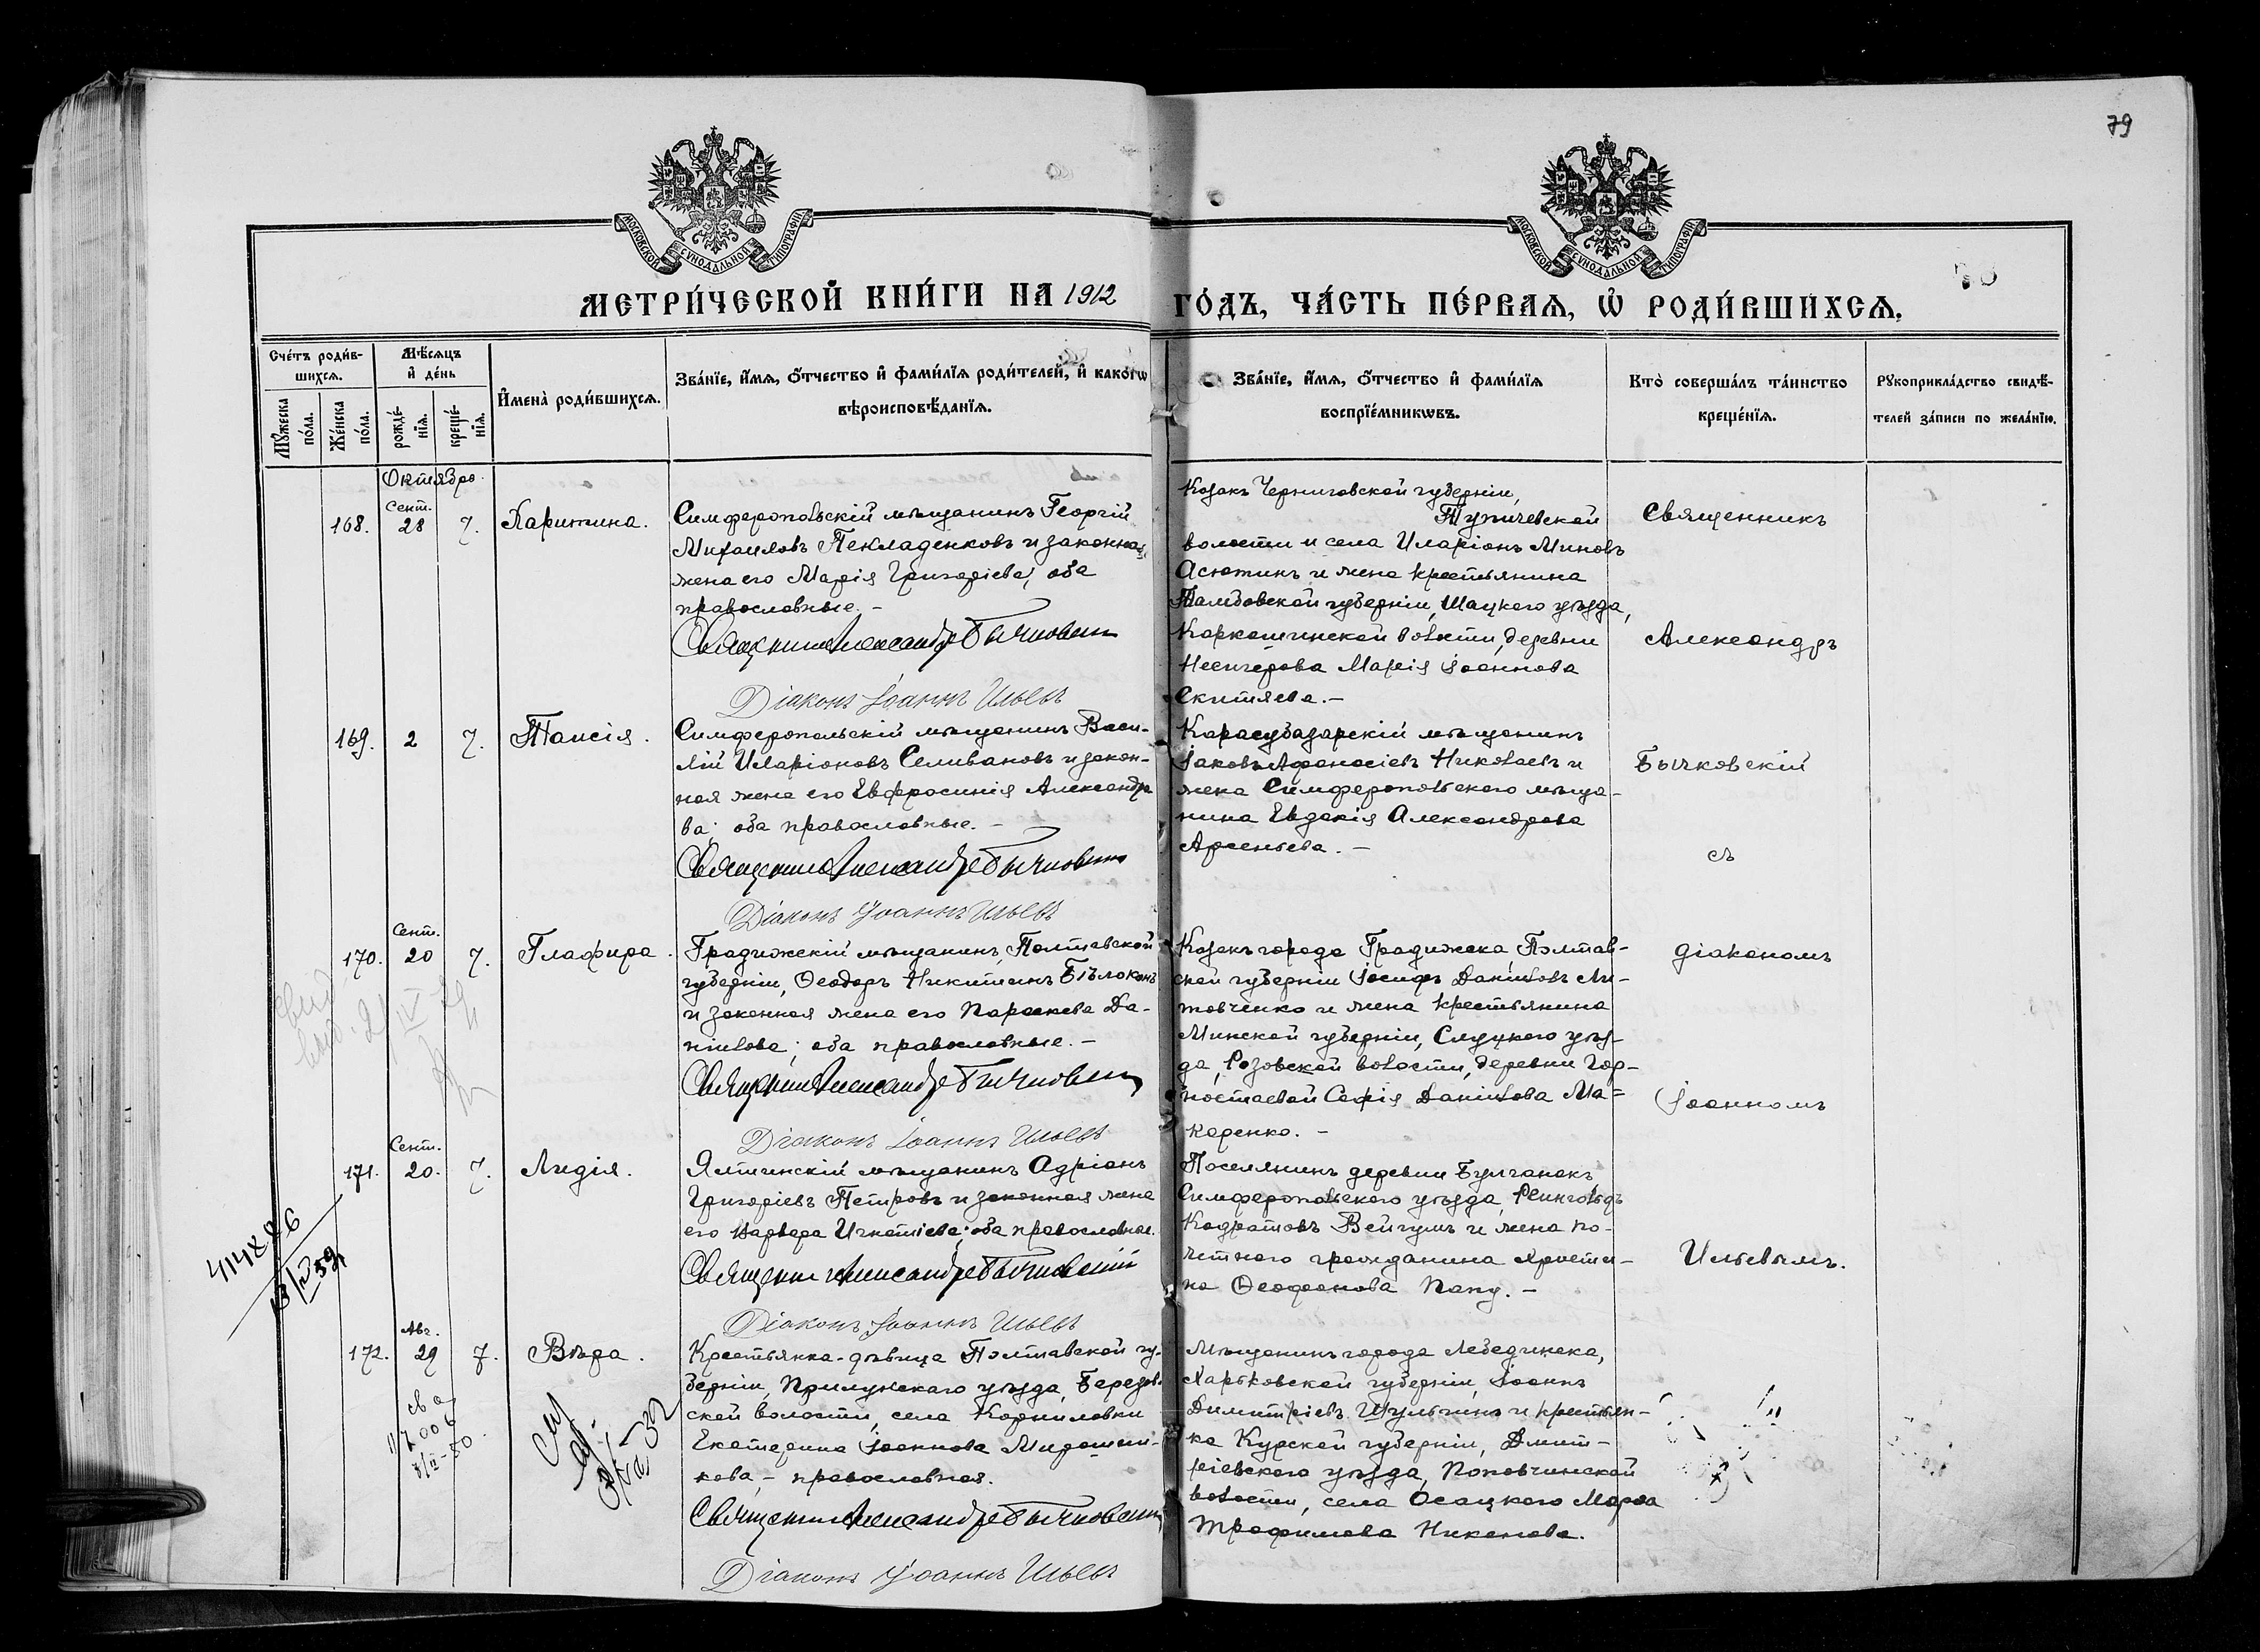 79
МОСКОВСКОЙ СѴНОДАЛЬНОЙ ТИПОГРАФІИ
МОСКОВСКОЙ СѴНОДАЛЬНОЙ ТИПОГРАФІИ
МЕТРИ́ЧЕСКОЙ КНИ́ГИ НА 1912 ГО́ДЪ, ЧА́СТЬ ПЕ́РВАЯ, Ѡ҆ РОДИ́ВШИХСЯ.
Сче́тъ роди́в-
шихся.
Мꙋ́жеска
по́ла.
Же́нска
по́ла.
Мѣ́сяцъ
и҆ де́нь
рожде́-
нїя.
креще́-
нїя.
И҆мена̀ роди́вшихся.
Зва́нїе, и҆́мя, ѻ҆́тчество и҆ фами́лїя роди́телей, и҆ како́гѡ
вѣроисповѣ́данїя.
Зва́нїе, и҆́мя, ѻ҆́тчество и҆ фами́лїя
воспрїе́мникѡвъ.
Кто̀ соверша́лъ та́инство
креще́нїя.
Рꙋкоприкла́дство свидѣ́-
телей за́писи по жела́нїю.
Октябрь
Сент.
168. 28 7. Харитина.
Симферопольскій мѣщанинъ Георгій
Михаиловъ Пекладенковъ и законная
жена его Марія Григоріева; оба
православные. –
Священникъ Александръ Бычковскій
Діаконъ Іоаннъ Ильевъ
Козакъ Черниговской губерніи,
Тупичевской
волости и села Иларіонъ Миновъ
Асютинъ и жена крестьянина
Тамбовской губерніи, Шацкого уѣзда,
волости, деревни
Марія Іоаннова
Скитяева. –
Священникъ
Александръ
Бычковскій
съ
діакономъ
Іоанномъ
Ильевымъ.
169. 2 7. Таисія.
Симферопольскій мѣщанинъ Васи-
лій Иларіоновъ Селивановъ и закон-
ная жена его Евфросинія Александро
ва; оба православные. –
Священникъ Александръ Бычковскій
Діаконъ Іоаннъ Ильевъ
Карасубазарскій мѣщанинъ
Іаковъ Афанасіевъ Николаевъ и
жена Симферопольского мѣща-
нина Евдокія Александрова
Арсеньева. –
Сент.
170. 20 7. Глафира.
Градижскій мѣщанинъ, Полтавской
губерніи, Ѳеодоръ Никитинъ Бѣлоконь
и законная жена его Параскева Да-
ніилова; оба православные. –
Священникъ Александръ Бычковскій
Діаконъ Іоаннъ Ильевъ
Козакъ города Градижска, Полтав-
ской губерніи Іосифъ Даніиловъ Ли-
товченко и жена крестьянина
Минской губерніи, Слуцкого уѣз-
да, Розовской волости, деревни Гор-
ностаевой Софія Даніилова Ма-
каренко. –
Сент.
171. 20. 7. Лидія.
Ялтинскій мѣщанинъ Адріанъ
Григоріевъ Петровъ и законная жена
его Варвара Игнатіева; оба православные.
Священникъ Александръ Бычковскій
Діаконъ Іоаннъ Ильевъ
Поселянинъ деревни Булганакъ
Симферопольского уѣзда, Рейнгольдъ
Кодратовъ Вейгумъ и жена по-
четного гражданина Христи-
на Ѳеофанова Папу. –
Авг.
172. 29 7. Вѣра.
Крестьянка-дѣвица Полтавской гу-
берніи, Прилукского уѣзда, Березов-
ской волости, села Корниловки
Екатерина Іоаннова Мирошни-
кова, – православная.
Священникъ Александръ Бычковскій
Діаконъ Іоаннъ Ильевъ
Мѣщанинъ города Лебединска,
Харьковской губерніи, Іоаннъ
Димитріевъ Шульгинъ и крестьян-
ка Курской губерніи, Дмит-
ріевского уѣзда, Поповчинской
волости, села Осоцкого Марѳа
Трофимова Никонова.